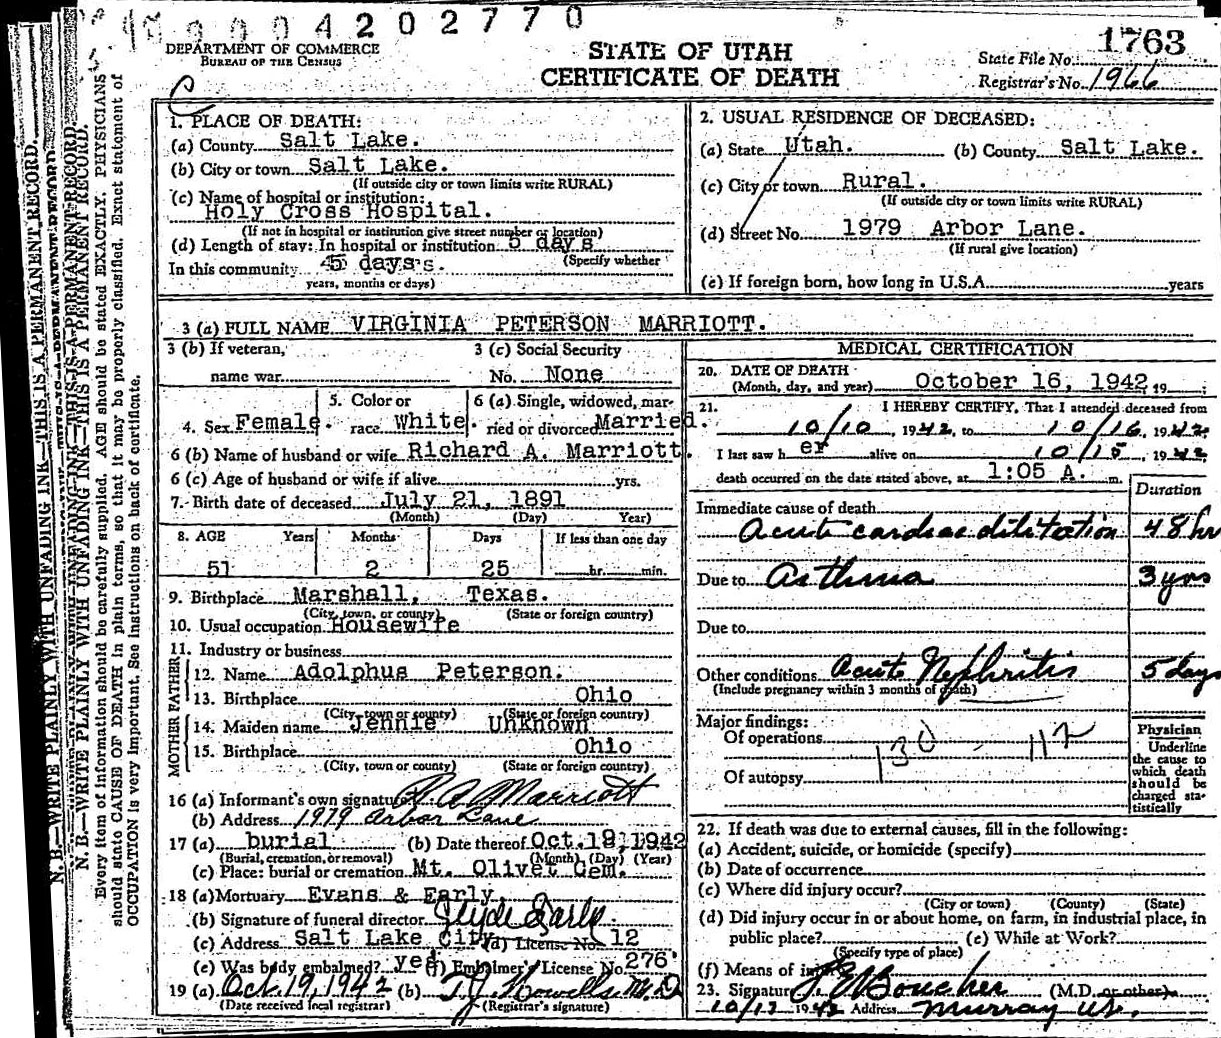 9 0 0 4 2 0 2 7 7 0
DEPARTMENT OF COMMERCE
BUREAU OF THE CENSUS
STATE OF UTAH
CERTIFICATE OF DEATH
State File No. 1763
Registrar's No. 1966
N. B.—WRITE PLAINLY WITH UNFADING INK—THIS IS A PERMANENT RECORD.
Every item of information should be carefully supplied. AGE should be stated EXACTLY. PHYSICIANS
should state CAUSE OF DEATH in plain terms, so that it may be properly classified. Exact statement of
OCCUPATION is very important. See instructions on back of certificate.
1. PLACE OF DEATH:
(a) County Salt Lake.
(b) City or town Salt Lake.
(If outside city or town limits write RURAL)
(c) Name of hospital or institution:
Holy Cross Hospital.
(If not in hospital or institution give street number or location)
(d) Length of stay: In hospital or institution 5 days
(Specify whether
In this community 45 days's.
years, months or days)
2. USUAL RESIDENCE OF DECEASED:
(a) State Utah. (b) County Salt Lake.
(c) City or town Rural.
(If outside city or town limits write RURAL)
(d) Street No. 1979 Arbor Lane.
(If rural give location)
(e) If foreign born, how long in U.S.A. years
3 (a) FULL NAME VIRGINIA PETERSON MARRIOTT.
3 (b) If veteran, 3 (c) Social Security
name war No. None
4. Sex Female. 5. Color or race White. 6 (a) Single, widowed, married or divorced Married.
6 (b) Name of husband or wife Richard A. Marriott.
6 (c) Age of husband or wife if alive yrs.
7. Birth date of deceased July 21, 1891
(Month) (Day) Year)
8. AGE Years Months Days If less than one day
51 2 25 hr. min.
9. Birthplace Marshall, Texas.
(City, town, or county) (State or foreign country)
10. Usual occupation Housewife
11. Industry or business
FATHER
12. Name Adolphus Peterson.
13. Birthplace Ohio
(City, town or county) (State or foreign country)
MOTHER
14. Maiden name Jennie Unknown
15. Birthplace Ohio
(City, town or county) (State or foreign country)
16 (a) Informant's own signature R. A. Marriott
(b) Address 1979 Arbor Lane
17 (a) burial (b) Date thereof Oct. 19, 1942
(Burial, cremation, or removal) (Month) (Day) (Year)
(c) Place: burial or cremation Mt. Olivet Cem.
18 (a) Mortuary Evans & Early
(b) Signature of funeral director Clyde Early
(c) Address Salt Lake City (d) License No. 12
(e) Was body embalmed? yes (f) Embalmer's License No. 276
19 (a) Oct. 19, 1942 (b) T. J. Howells M.D.
(Date received local registrar) (Registrar's signature)
MEDICAL CERTIFICATION
20. DATE OF DEATH
(Month, day, and year) October 16, 1942, 19
21. I HEREBY CERTIFY, That I attended deceased from
10/10, 1942, to 10/16, 1942.
I last saw her alive on 10/15, 1942
death occurred on the date stated above, at 1:05 A. m.
Duration
Immediate cause of death
Acute cardiac dilitation 48 hr
Due to Asthma 3 yrs
Due to
Other conditions Acute Nephritis 5 days
(Include pregnancy within 3 months of death)
Major findings:
Of operations
130 - 112
Of autopsy
Physician
Underline
the cause to
which death
should be
charged sta-
tistically
22. If death was due to external causes, fill in the following:
(a) Accident, suicide, or homicide (specify)
(b) Date of occurrence
(c) Where did injury occur?
(City or town) (County) (State)
(d) Did injury occur in or about home, on farm, in industrial place, in
public place? (e) While at Work?
(Specify type of place)
(f) Means of injury
23. Signature Boucher (M.D. or other)
10/17 1942 Address Murray Ut.